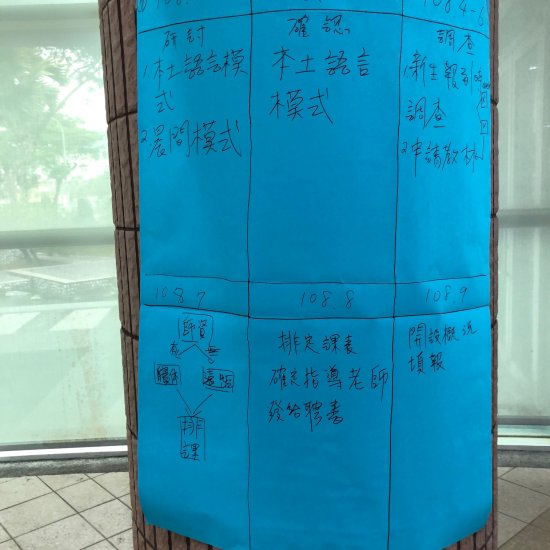 108.4-6
研討
1.本土語言模
式
2.晨間模式
確認
本土語言
模式
調查
1.新生報到
調查
2.申請教材
108.7
師資
有
無
排
課
108.8
排定課表
確定指導老師
發給聘書
108.9
開設概況
填報